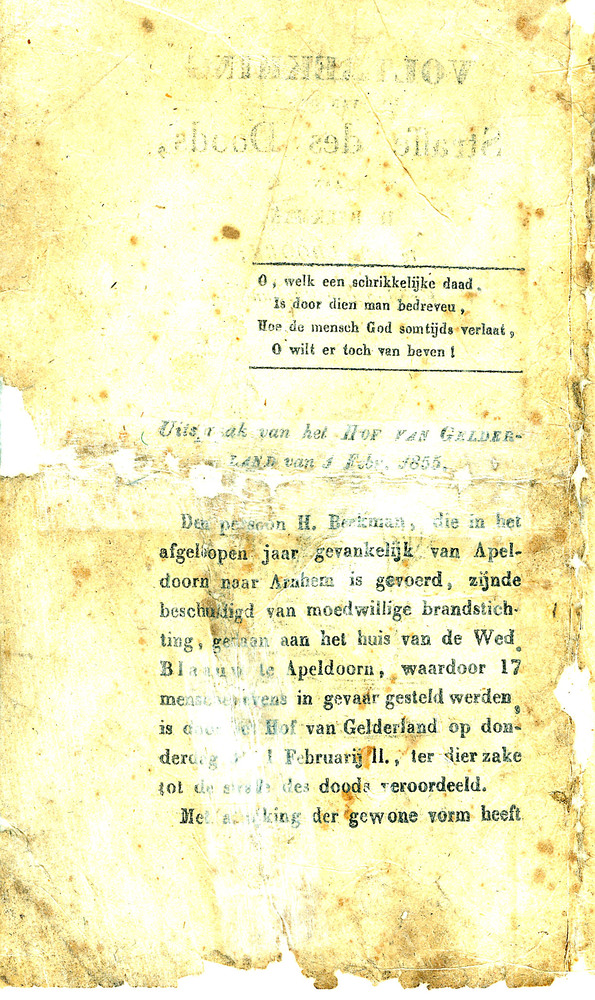 O, welk een schrikkelijke daad.
Is door dien man bedreven,
Hoe de mensch God somtijds verlaat,
O wilt er toch van beven!
Uitspraak van het HOF VAN GELDER-
LAND van 1 Febr. 1855.
Den persoon H. Berkman, die in het
afgeloopen jaar gevankelijk van Apel-
doorn naar Arnhem is gevoerd, zijnde
beschuldigd van moedwillige brandstich-
ting, gedaan aan het huis van de Wed.
Blaauw te Apeldoorn, waardoor 17
menschenlevens in gevaar gesteld werden,
is door het Hof van Gelderland op don-
derdag 1 Februarij ll., ter dier zake
tot de straffe des doods veroordeeld.
Met der gewone vorm heeft